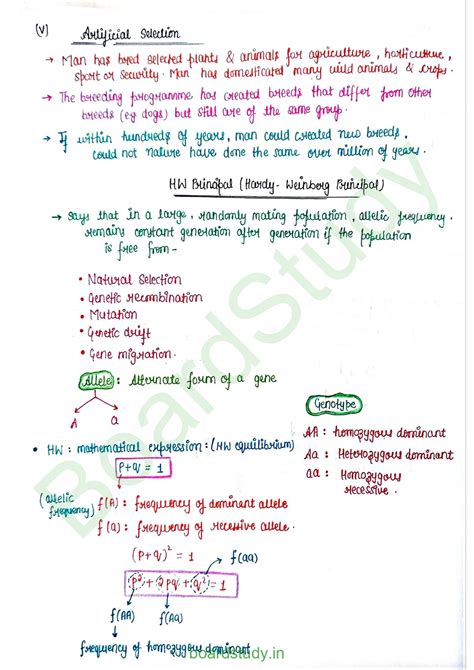 (V) Artificial Selection
→ Man has bred selected plants & animals for agriculture, horticulture,
sport or security. Man has domesticated many wild animals & crops.
→ The breeding programme has created breeds that differ from other
breeds (eg dogs) but still are of the same group.
→ If within hundreds of years, man could created new breeds,
could not nature have done the same over million of years.
HW Prinicpal (Hardy- Weinberg Principal)
→ Says that in a large, randomly mating population, allelic frequency
remains constant generation after generation if the population
is free from-
• Natural Selection
• Genetic recombination
• Mutation
• Genetic drift
• Gene migration.
Allele : Alternate form of a gene
A a
Genotype
AA : homozygous dominant
Aa : Heterozygous dominant
aa : Homozygous
recessive.
• HW : mathematical expression : (HW equilibrium)
p+q = 1
(allelic
frequency)
f(A) : frequency of dominant allele
f(a) : frequency of recessive allele.
(p+q)² = 1
f(aa)
p² + 2pq + q² = 1
f(AA) f(Aa)
frequency of homozygous dominant
boardstudy.in
BoardStudy